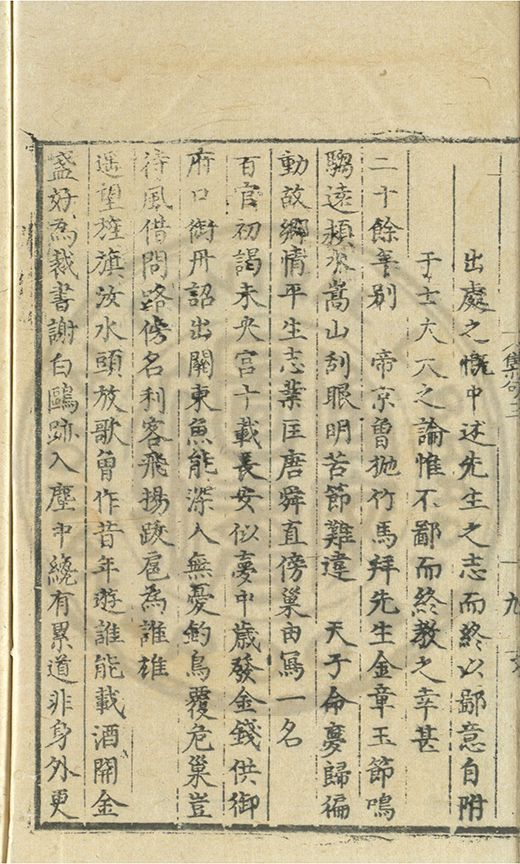 出處之慨中述先生之志而終以鄙意自附
于士大夫之論惟不鄙而終教之幸甚
二十餘年別　帝京曾拋竹馬拜先生金章玉節鳴
騶遠潁水嵩山刮眼明苦節難違　天子命夢歸徧
動故鄉情平生志業匡唐舜直傍巢由寫一名
百官初謁未央宮十載長安似夢中歲發金錢供御
府口銜丹詔出關東魚能深入無憂釣鳥覆危巢豈
待風借問路傍名利客飛揚跋扈為誰雄
遥望旌旗汝水頭放歌曾作昔年遊誰能載酒開金
盞好為裁書謝白鷗跡入塵中纔有累道非身外更